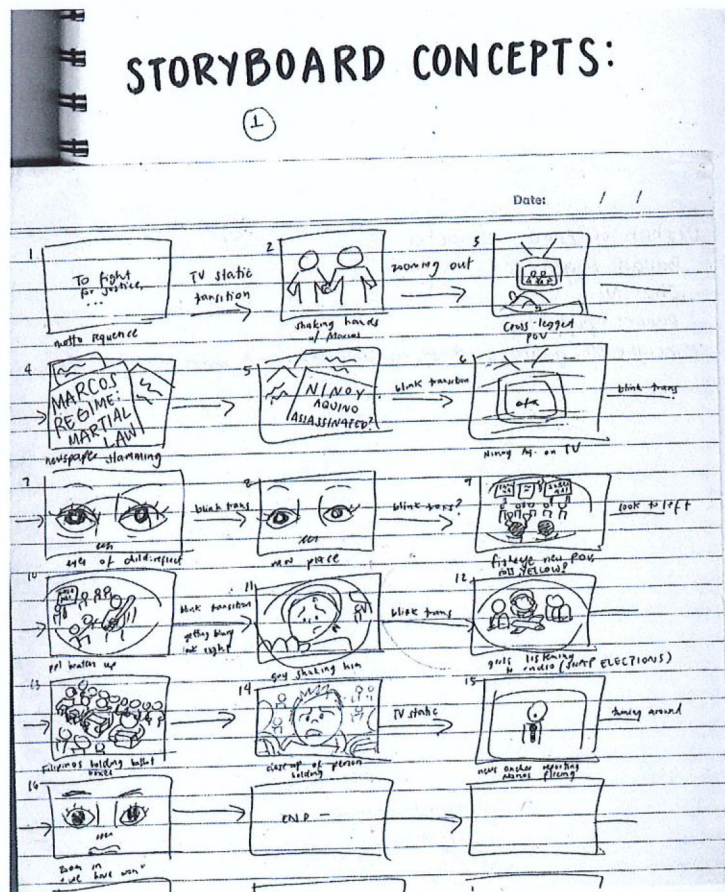 STORYBOARD CONCEPTS:
1
Date: / /
1
To fight
for justice,
...
motto sequence
TV static
transition
2
shaking hands
w/ Marcos
zooming out
3
cross-legged
POV
4
MARCOS
REGIME:
MARTIAL
LAW
newspaper slamming
5
NINOY
AQUINO
ASSASSINATED?
blink transition
6
Ninoy Aq. on TV
blink trans
7
eyes of child: reflect
blink trans
8
new place
blink trans?
9
fisheye new POV,
look to left
10
ppl beaten up
blink transition
getting blurry
look right
11
guy shaking him
blink trans
12
girls listening
to radio (SNAP ELECTIONS)
13
Filipinos holding ballot
boxes
14
close up of person
holding
TV static
15
news anchor reporting
Marcos fleeing
turning around
16
zoom in
"we have won"
END -